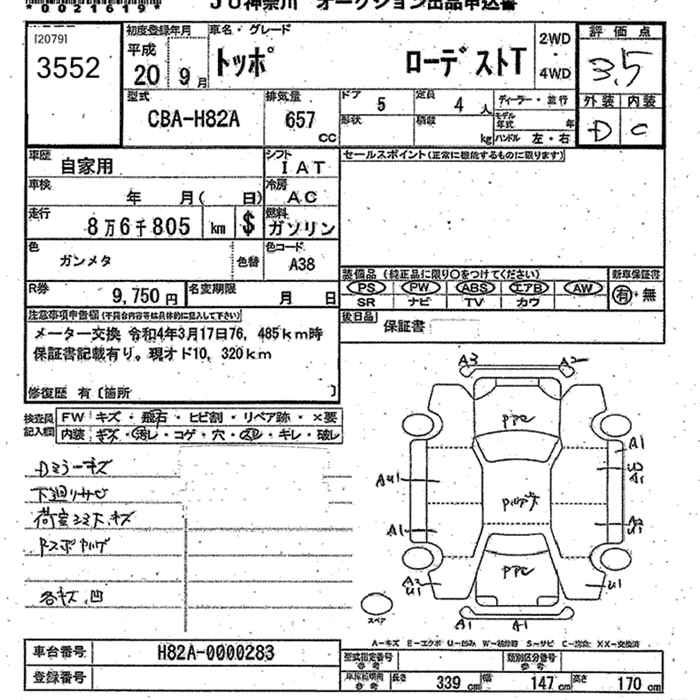 *00216191*
JU神奈川 オークション出品申込書
[2079]
3552
初度登録年月
平成
20年 9月
車名・グレード
トッポ ローデストT
2WD
・
4WD
評価点
3.5
外装 内装
D C
型式
CBA-H82A
排気量
657
CC
ドア 5
定員 4人
形状
積載 kg
ディーラー・並行
モデル年式 年
ハンドル 左・右
車歴
自家用
シフト
IAT
車検
年 月( 日)
冷房
AC
走行
8万6千805 km $
燃料
ガソリン
色
ガンメタ
色替
色コード
A38
R券
9,750円
名変期限
月 日
セールスポイント(正常に機能するものに限ります)
装備品(純正品に限り○をつけてください)
PS PW ABS エアB AW
SR ナビ TV カワ
新車保証書
有・無
後日品
保証書
注意事項申告欄(不具合内容等は具体的に記入して下さい)
メーター交換 令和4年3月17日76,485km時
保証書記載有り。現オド10,320km
修復歴 有〔箇所 〕
検査員記入欄
FW キズ・飛石・ヒビ割・リペア跡・×要
内装 キズ・汚レ・コゲ・穴・スレ・キレ・破レ
Dミラーキズ
下廻りサビ
各キズ、凹
A3 A2
A1
A1
A1
U1
U1
A1 A1
スペア
A-キズ E-エクボ U-凹み S-サビ XX-交換済
車台番号
H82A-0000283
登録番号
型式指定番号
参考
類別区分番号
参考
長さ 339cm
幅 147cm
高さ 170cm